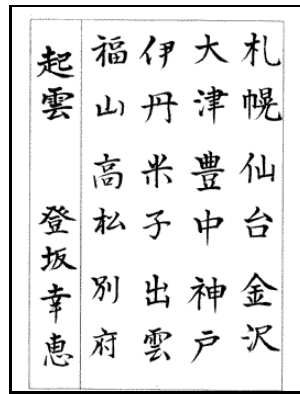 札幌 仙台 金沢
大津 豊中 神戸
伊丹 米子 出雲
福山 高松 別府
起雲 登坂幸恵